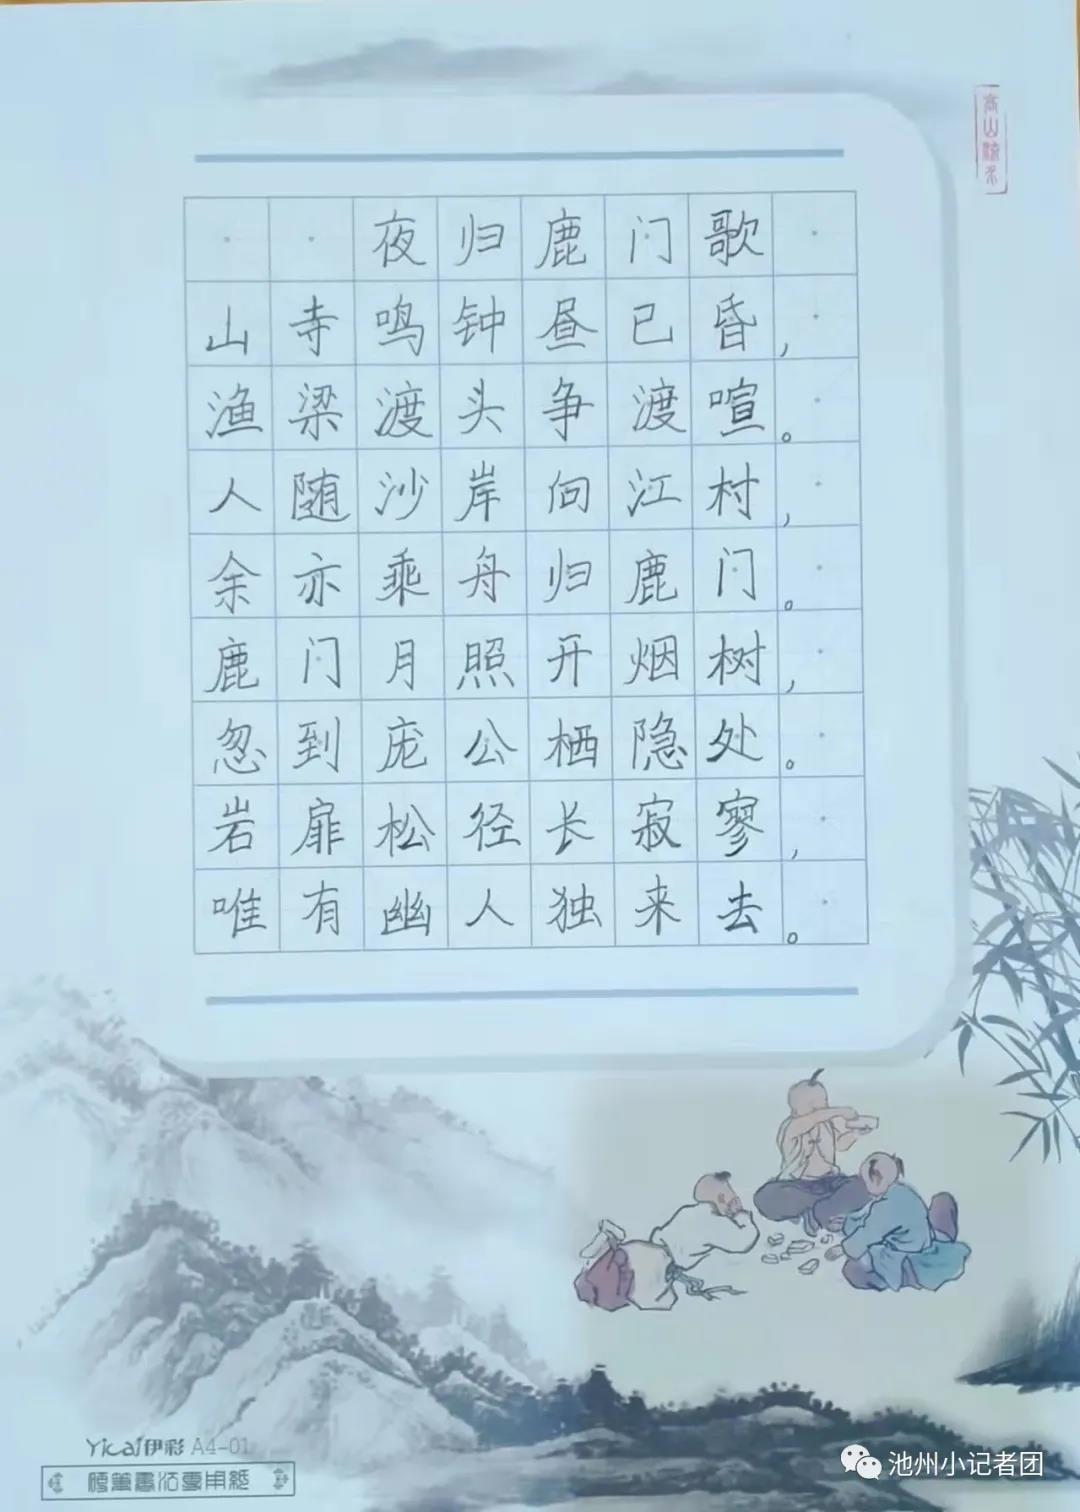 高山流水
夜归鹿门歌
山寺鸣钟昼已昏，
渔梁渡头争渡喧。
人随沙岸向江村，
余亦乘舟归鹿门。
鹿门月照开烟树，
忽到庞公栖隐处。
岩扉松径长寂寥，
唯有幽人独来去。
Yicai伊彩 A4-01
硬笔书法专用纸
池州小记者团